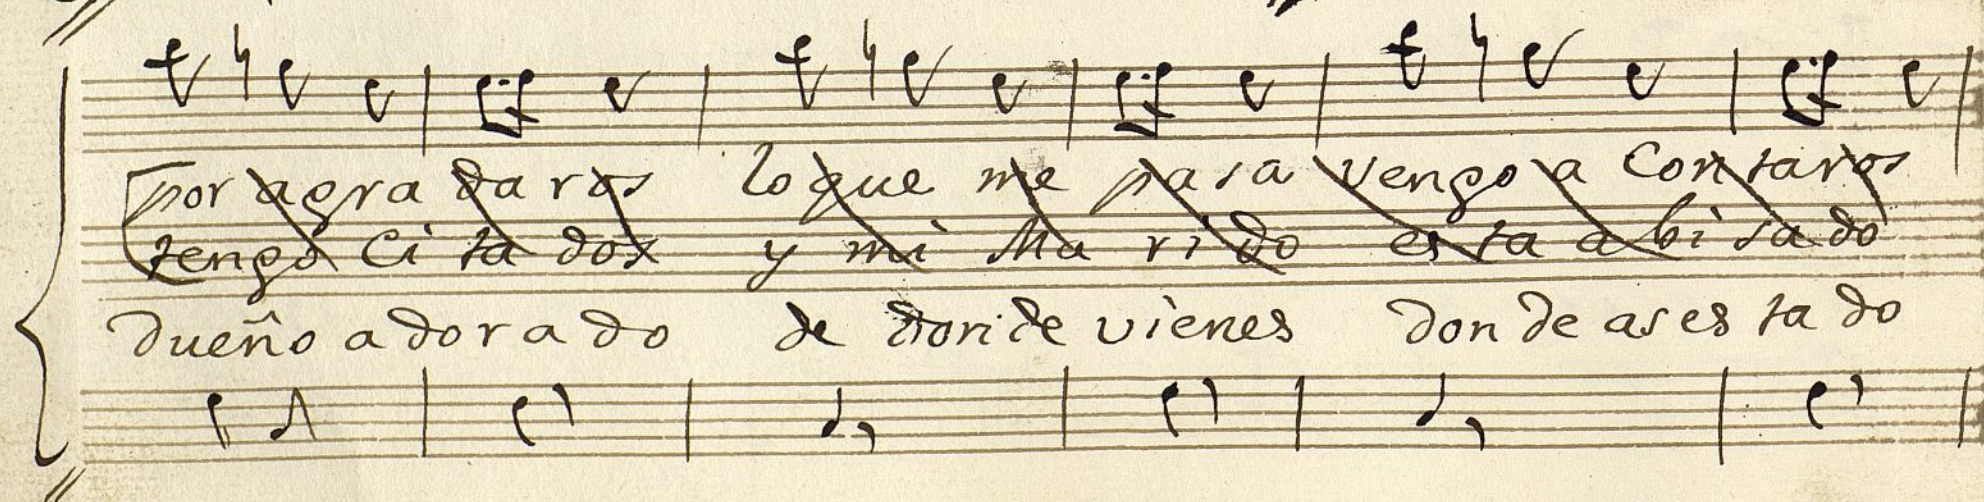 por agra da ros lo que me pasa vengo a Con taros
tengo Ci ta dos y mi Ma ri do es ta a bi sa do
dueño a do r a do de donde vienes don de as es ta do